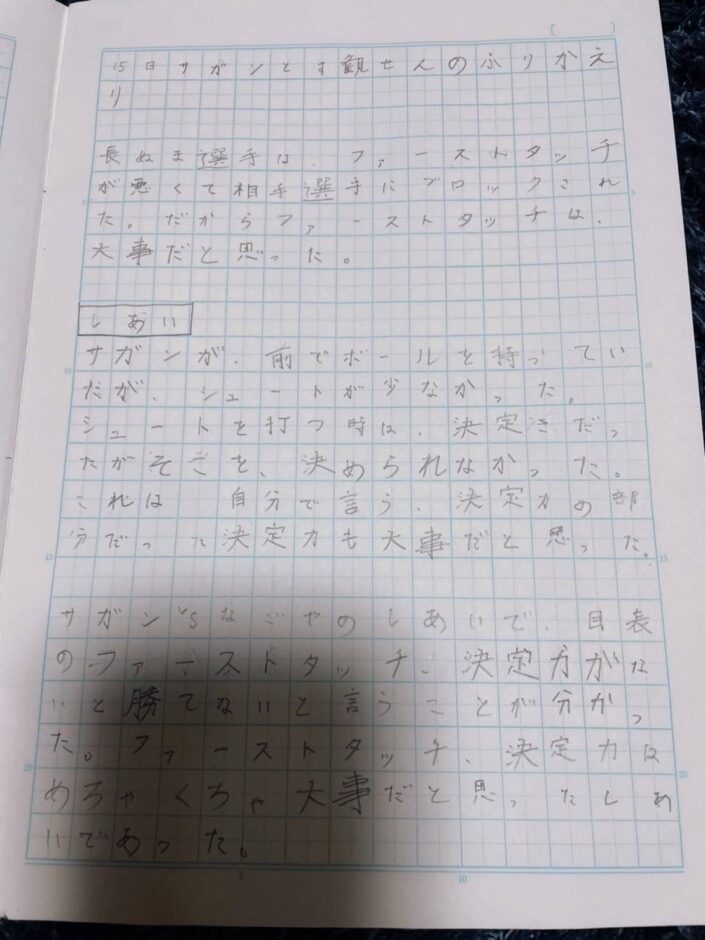 15日サガンとす観せんのふりかえ
り
長ぬま選手は、ファーストタッチ
が悪くて相手選手にブロックされ
た。だからファーストタッチは、
大事だと思った。
しあい
サガンが、前でボールを持ってい
だが、シュートが少なかった。
シュートを打つ時は、決定きだっ
たがそこを、決められなかった。
これは 自分で言う、決定力の部
分だった決定力も大事だと思った。
サガンvsなごやのしあいで、目表
のファーストタッチ、決定力がな
いと勝てないと言うことが分かっ
た。ファーストタッチ、決定力は
めちゃくちゃ大事だと思ったしあ
いであった。